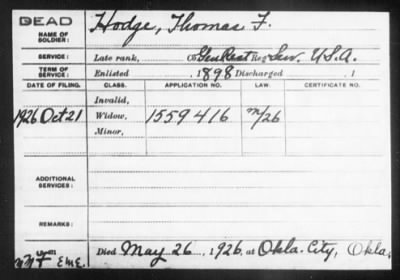 DEAD
NAME OF SOLDIER: Hodge, Thomas F.
SERVICE: Late rank, Co Gen Rect Reg Ser. U.S.A.
TERM OF SERVICE: Enlisted , 1898 Discharged , 1
DATE OF FILING. CLASS. APPLICATION NO. LAW. CERTIFICATE NO.
Invalid,
1926 Oct 21 Widow, 1559416 m/26
Minor,
ADDITIONAL SERVICES:
REMARKS:
Died May 26, 1926, at Okla. City, Okla.